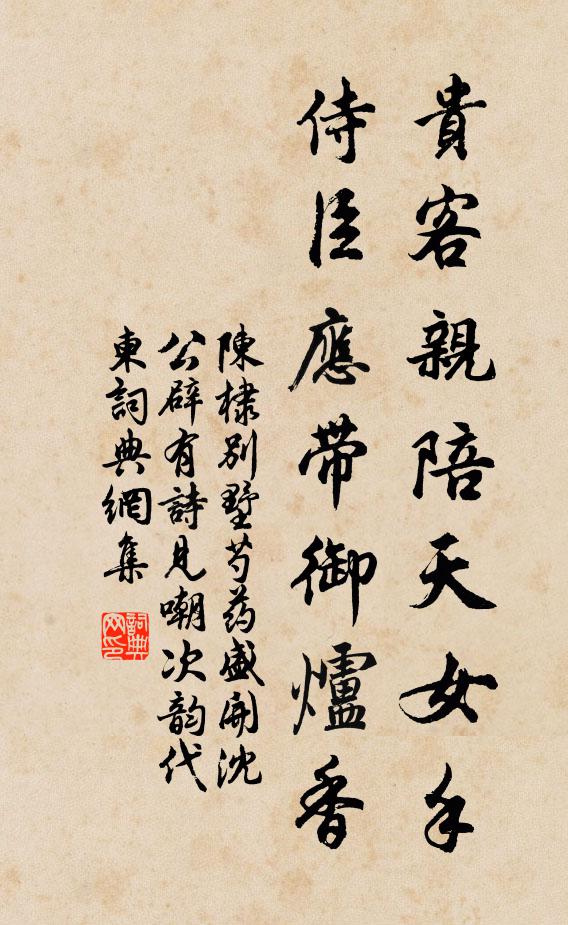 貴客親陪天女手
侍臣應帶御爐香
陳棣別墅芍药盛開沈
公辟有詩見嘲次韵代
東詞典網集
詞典
网印